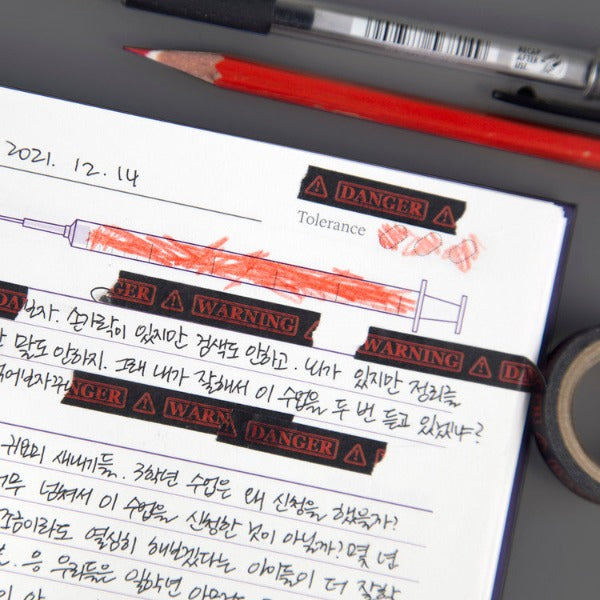 RECAP
AFTER
USE
2021. 12. 14
DANGER
Tolerance
GER WARNING
보자. 손가락이 있지만 검색도 안하고. 뇌가 있지만 정리를
WARNING DA
말도 안하지. 그래 내가 잘해서 이 수업을 두 번 듣고 있겠냐?
NGER WARN DANGER
귀요미 새내기들. 3학년 수업은 왜 신청을 했을까?
넘쳐서 이 수업을 신청한 것이 아닐까? 몇 년
조금이라도 열심히 해보겠다는 아이들이 더 잘할
응 우리들은 일학년